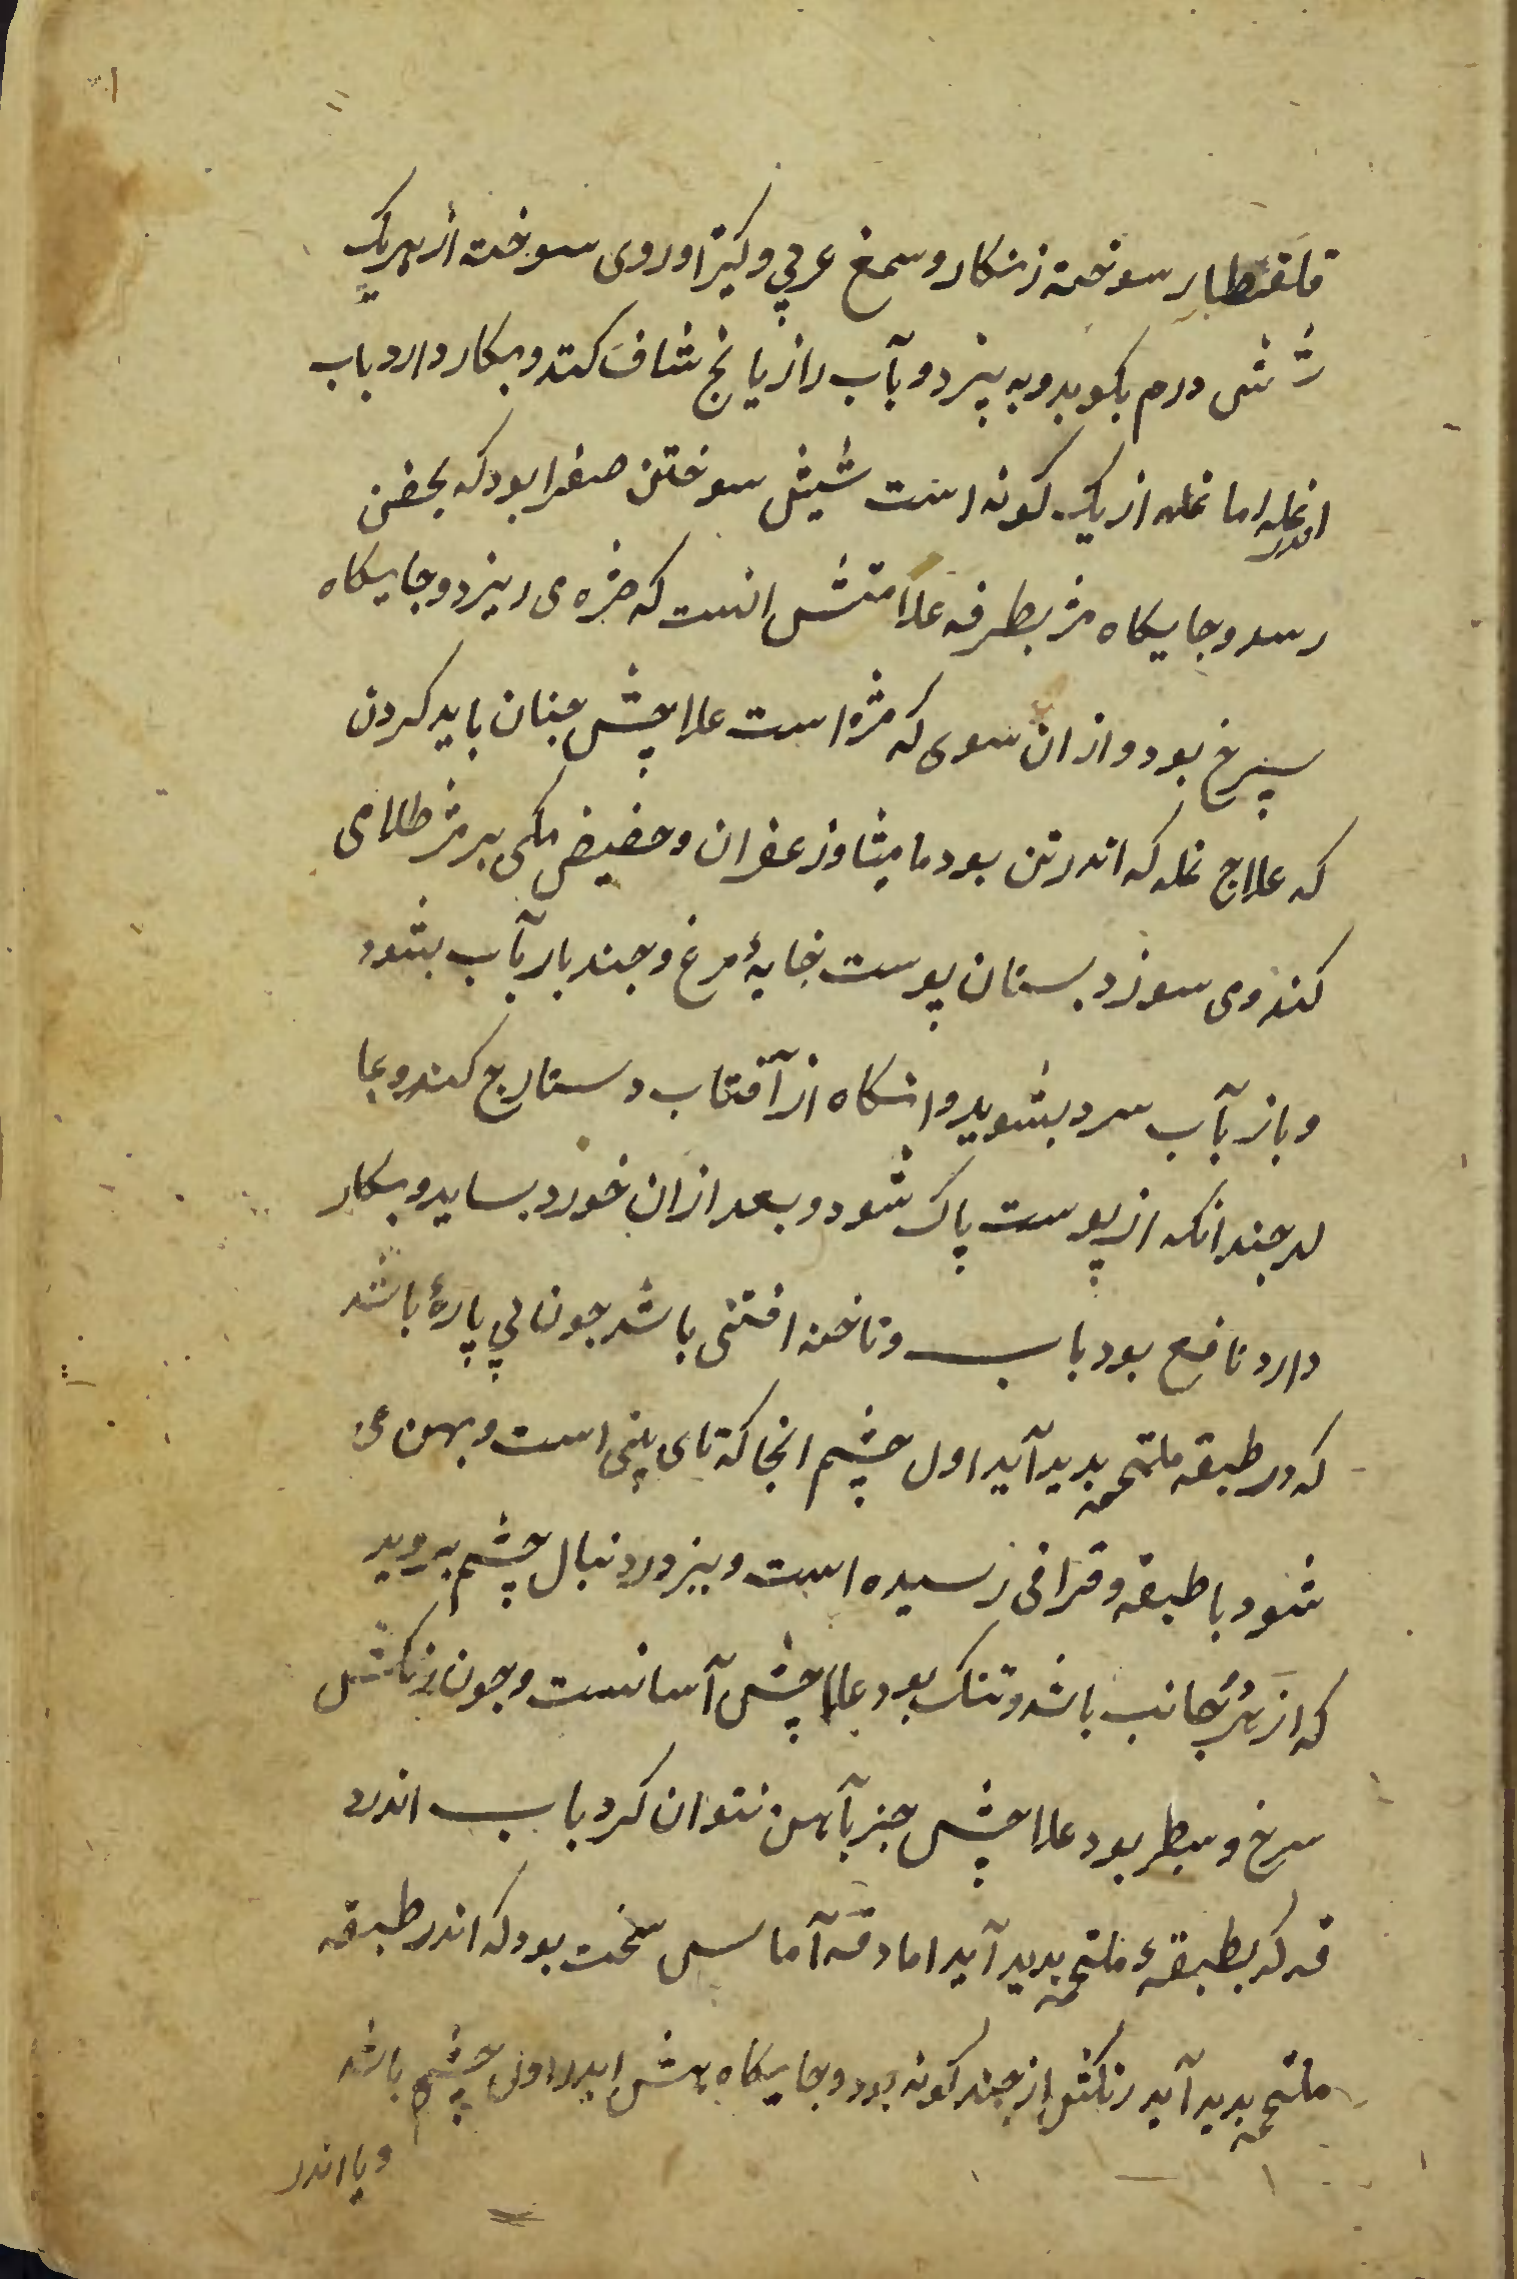 قلقطبار سوخته زنکار و سمغ عربي و کتیرا و روی سوخته از هر یک
شش درم بکوبد و به پیزد و بآب رازیانج شاف کند و بکار دارد باب
اندر نمله اما نمله از یک کونه است سببش سوختن صفرا بود که بجفن
رسد و جایکاه مژ بطرفه علامتش انست که مژه می ریزد و جایکاه
سرخ بود و از ان سوی که مژه است علاجش جنان باید کردن
که علاج نمله که اندر تن بود مامیثا و زعفران و حضیض مکی بر مژ طلا می
کند و می سوزد بستان پوست خایهٔ مرغ و جند بار بآب بشود
و باز بآب سرد بشوید و انکاه از آفتاب دستارج کند و بما
لد جندانکه از پوست پاک شود و بعد ازان خورد بساید و بکار
دارد نافع بود باب و ناخنه افتنی باشد جون پی پارهٔ باشد
که در طبقه ملتحمه بدید آید اول چشم انجا که تای بینی است و بهن می
شود با طبقه و قرانی رسیده است و نیز در دنبال چشم بروید
که از هر جانب باشد و تنک بود علاجش آسانست و جون رنکش
سرخ و سطبر بود علاجش جز بآهن نتوان کرد باب اندر د
قه که بطبقهٔ ملتحمه بدید آید اما دقه آماسی سخت بود که اندر طبقه
ملتحمه بدید آید رنکش از جند کونه بود و جایکاهش اندر اول چشم باشد
و یا اندر